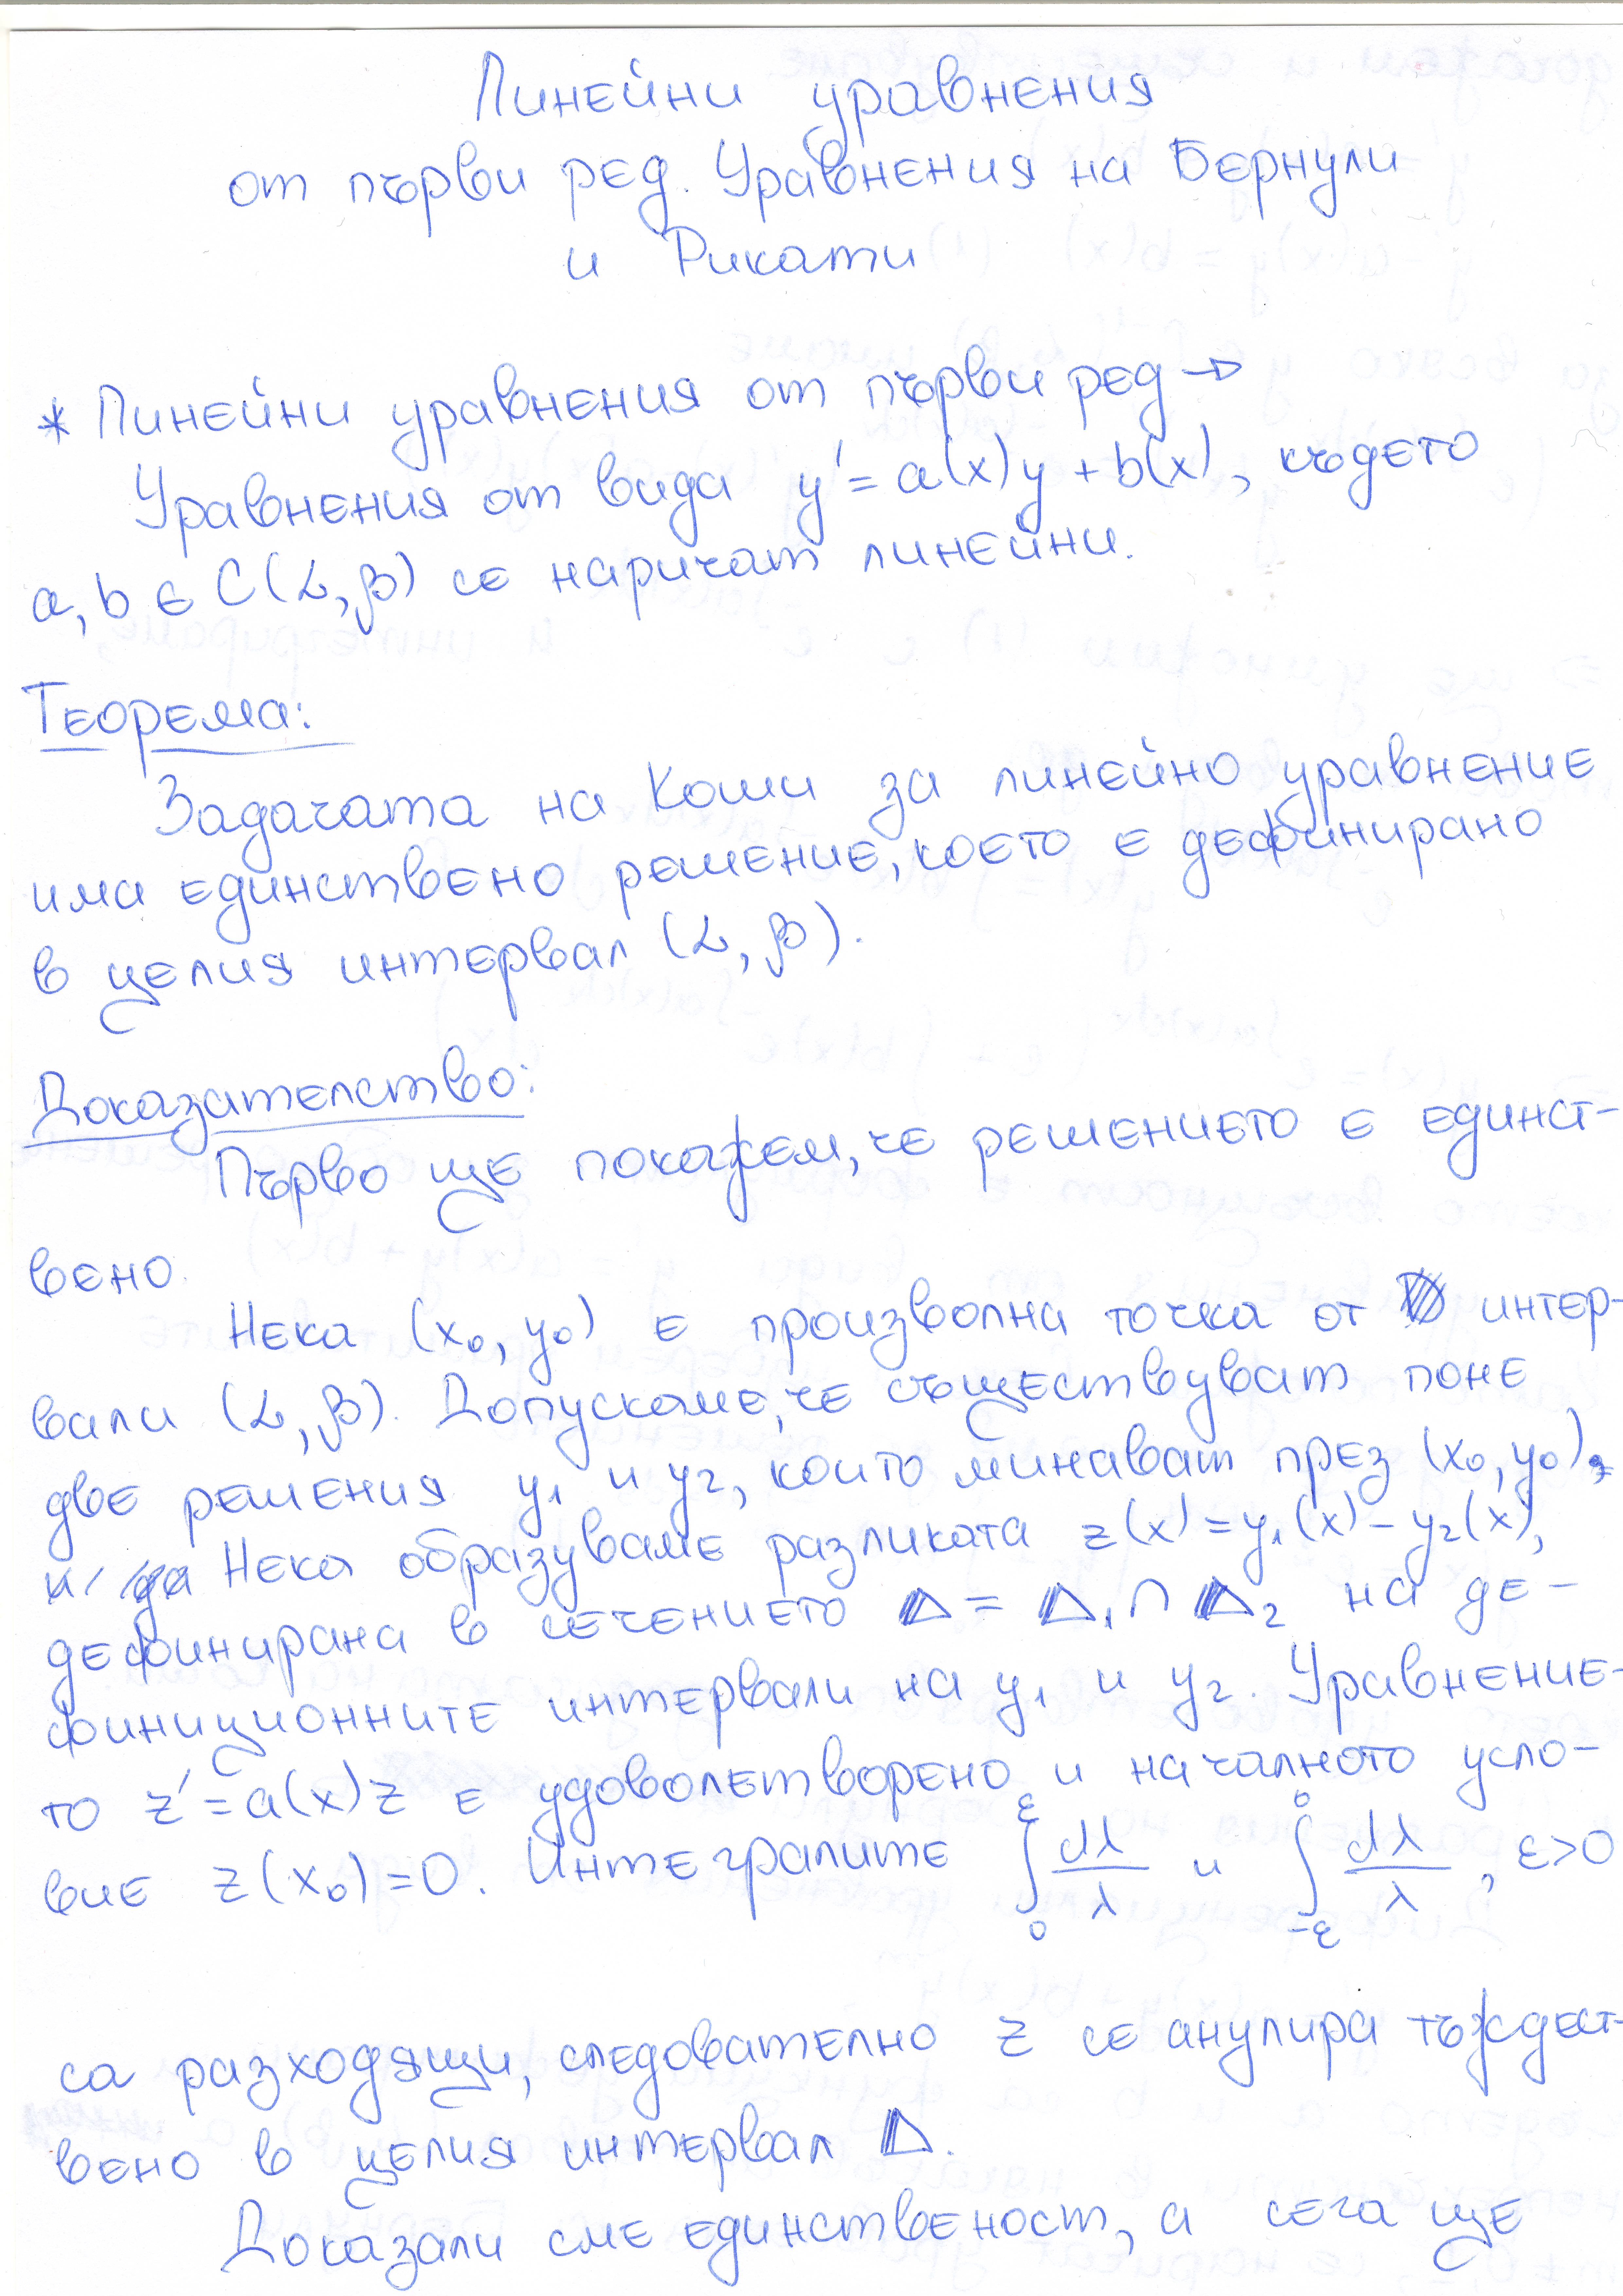 Линейни уравнения
от първи ред. Уравнения на Бернули
и Рикати
* Линейни уравнения от първи ред →
Уравнения от вида y' = a(x)y + b(x), където
a, b ∈ C(α, β) се наричат линейни.
Теорема:
Задачата на Коши за линейно уравнение
има единствено решение, което е дефинирано
в целия интервал (α, β).
Доказателство:
Първо ще покажем, че решението е единст-
вено.
Нека (x₀, y₀) е произволна точка от интер-
вали (α, β). Допускаме, че съществуват поне
две решения y₁ и y₂, които минават през (x₀, y₀),
Нека образуваме разликата z(x) = y₁(x) - y₂(x),
дефинирана в сечението Δ = Δ₁ ∩ Δ₂ на де-
финиционните интервали на y₁ и y₂. Уравнение-
то z' = a(x)z е удоволетворено и началното усло-
вие z(x₀) = 0. Интегралите ∫₀^ε dλ/λ и ∫_{-ε}^0 dλ/λ, ε>0
са разходящи, следователно z се анулира тъждест-
вено в целия интервал Δ.
Доказали сме единственост, а сега ще